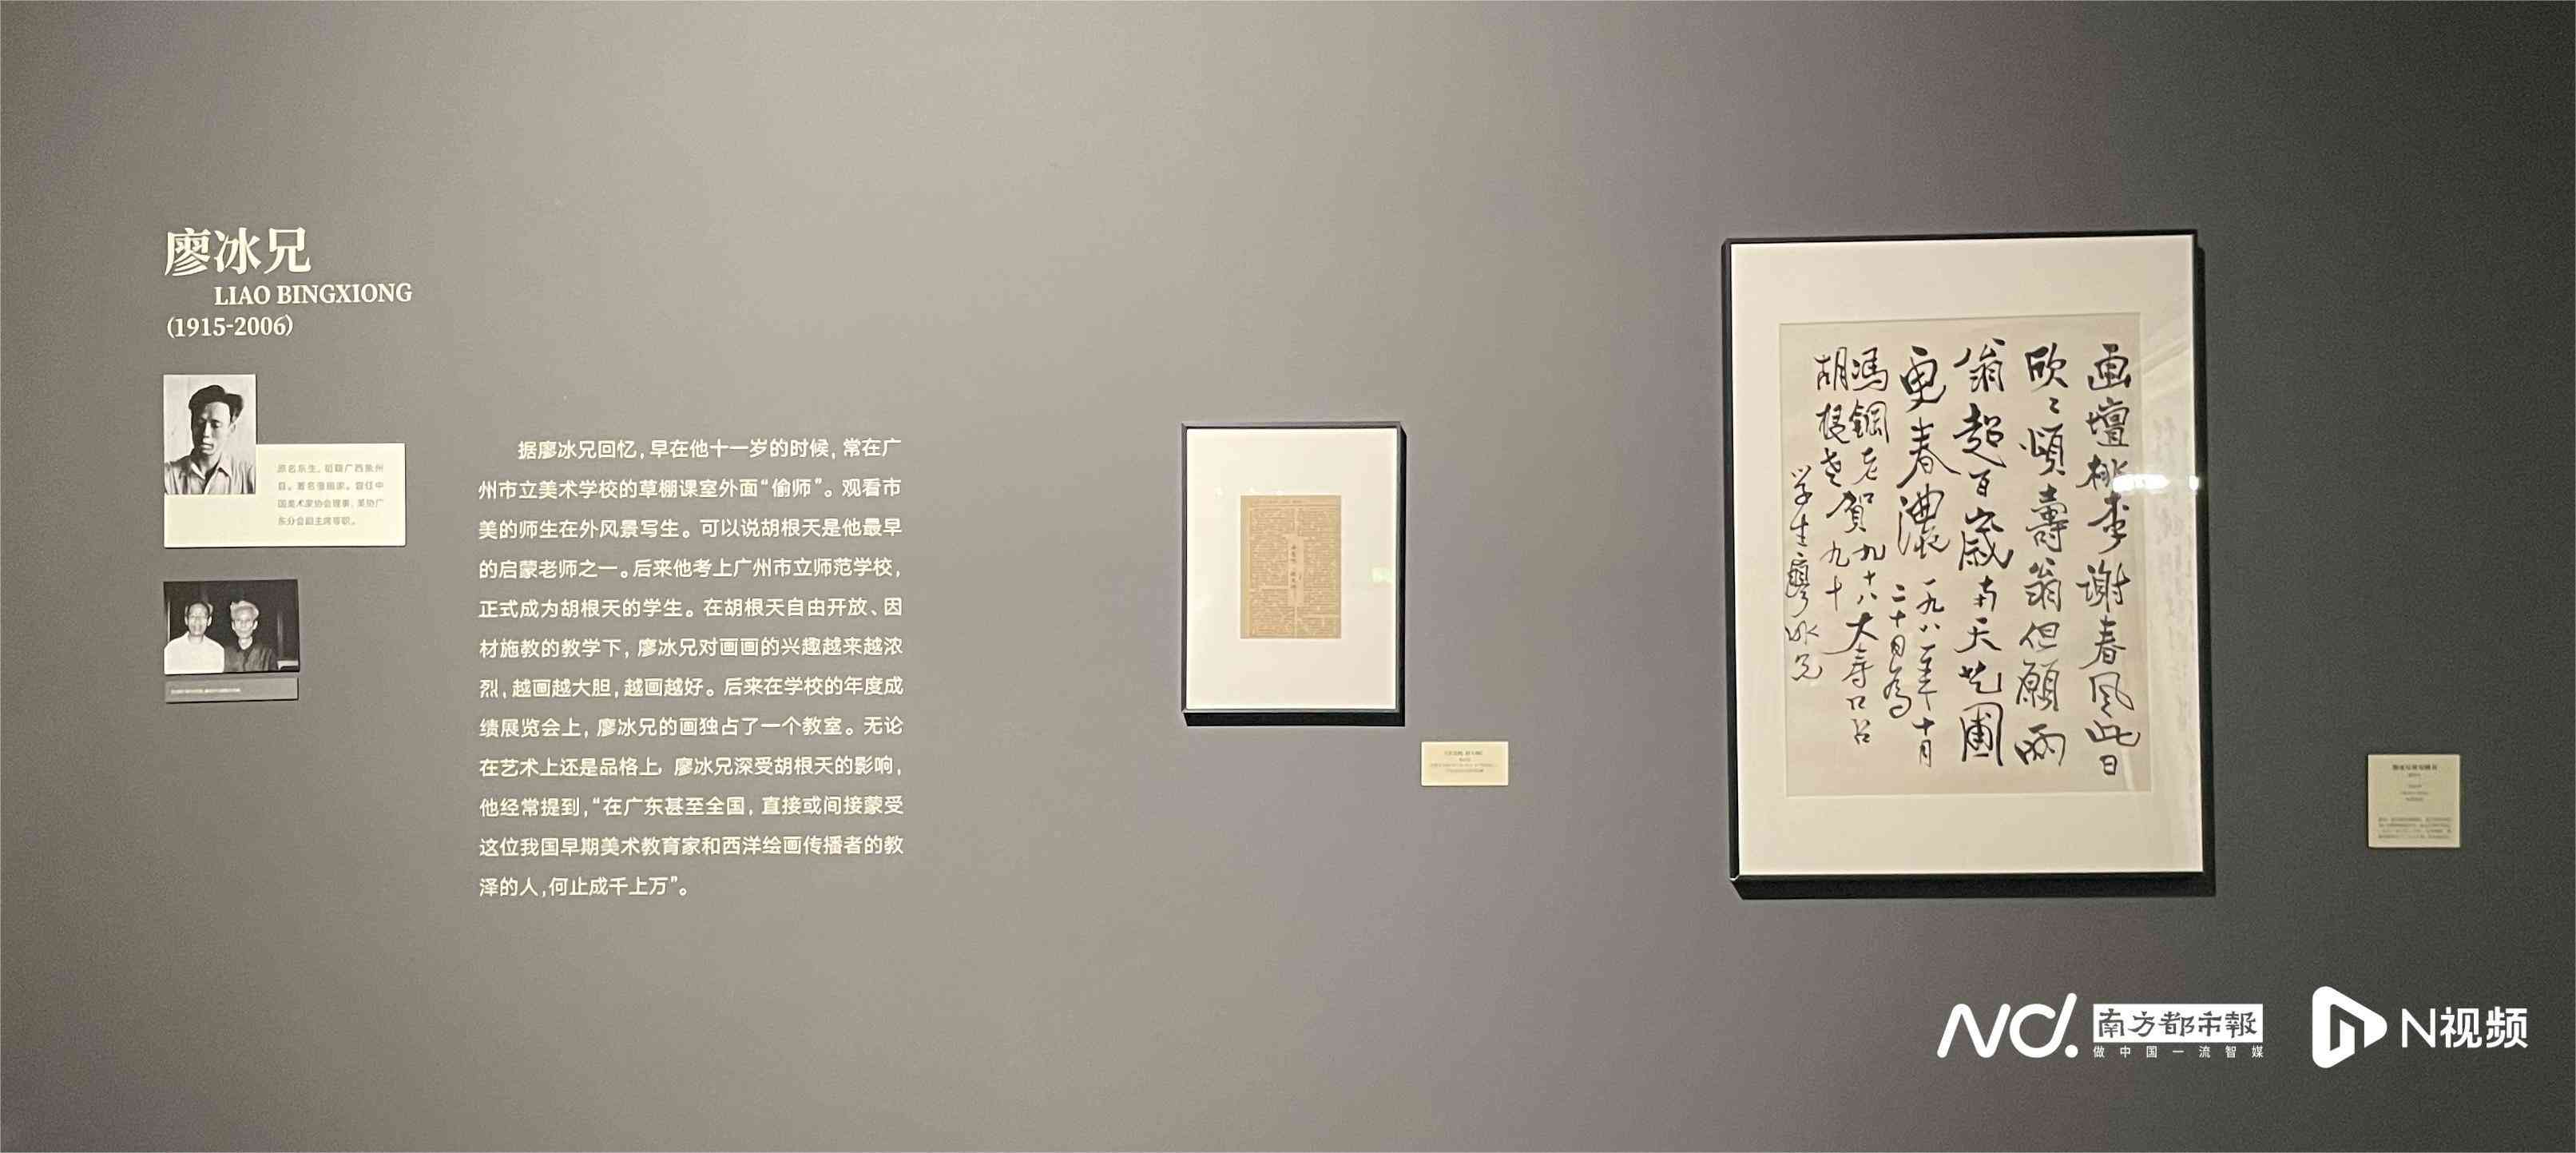 廖冰兄
LIAO BINGXIONG
(1915-2006)
原名东生，祖籍广西象州
县。著名漫画家。曾任中
国美术家协会理事、美协广
东分会副主席等职。
据廖冰兄回忆，早在他十一岁的时候，常在广
州市立美术学校的草棚课室外面“偷师”。观看市
美的师生在外风景写生。可以说胡根天是他最早
的启蒙老师之一。后来他考上广州市立师范学校，
正式成为胡根天的学生。在胡根天自由开放、因
材施教的教学下，廖冰兄对画画的兴趣越来越浓
烈，越画越大胆，越画越好。后来在学校的年度成
绩展览会上，廖冰兄的画独占了一个教室。无论
在艺术上还是品格上，廖冰兄深受胡根天的影响，
他经常提到，“在广东甚至全国，直接或间接蒙受
这位我国早期美术教育家和西洋绘画传播者的教
泽的人，何止成千上万”。
画壇桃李谢春风此日
欣〻頌壽翁但願兩
翁超百歲南天艺圃
更春濃
一九八一年十月
二十日為
馮鋼老賀九十八大寿口占
胡根老 九十
学生廖冰兄
nd.
南方都市報
做中国一流智媒
N视频